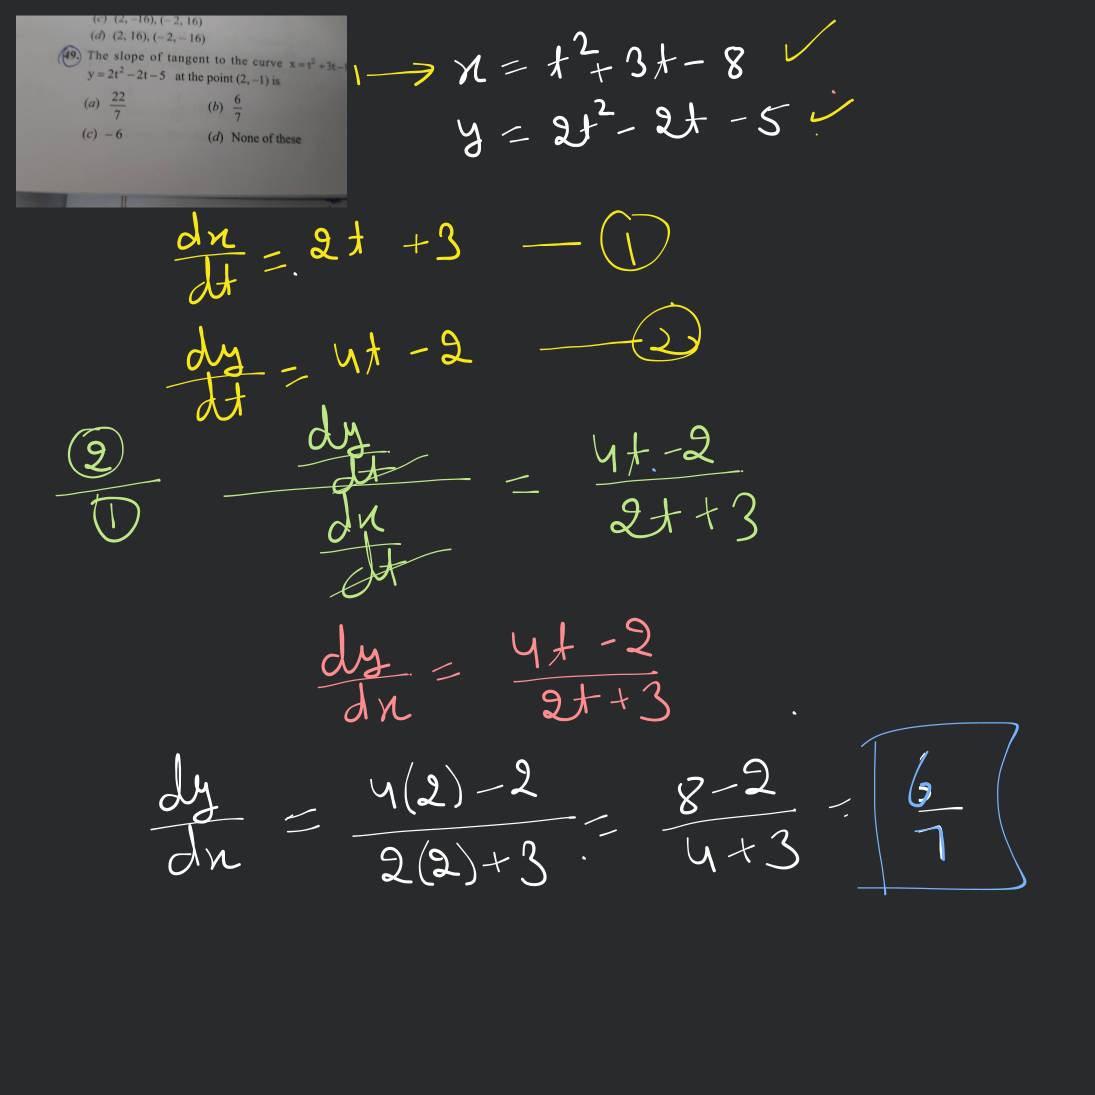 (c) (2, −16), (−2, 16)
(d) (2, 16), (−2, −16)
49. The slope of tangent to the curve x = t² + 3t −
y = 2t² − 2t − 5 at the point (2, −1) is
(a) 22/7 (b) 6/7
(c) − 6 (d) None of these
1 → x = t² + 3t − 8 ✓
y = 2t² − 2t − 5 ✓
dx/dt = 2t + 3 — ①
dy/dt = 4t − 2 — ②
②/① (dy/dt)/(dx/dt) = (4t − 2)/(2t + 3)
dy/dx = (4t − 2)/(2t + 3)
dy/dx = (4(2) − 2)/(2(2) + 3) = (8 − 2)/(4 + 3) = 6/7